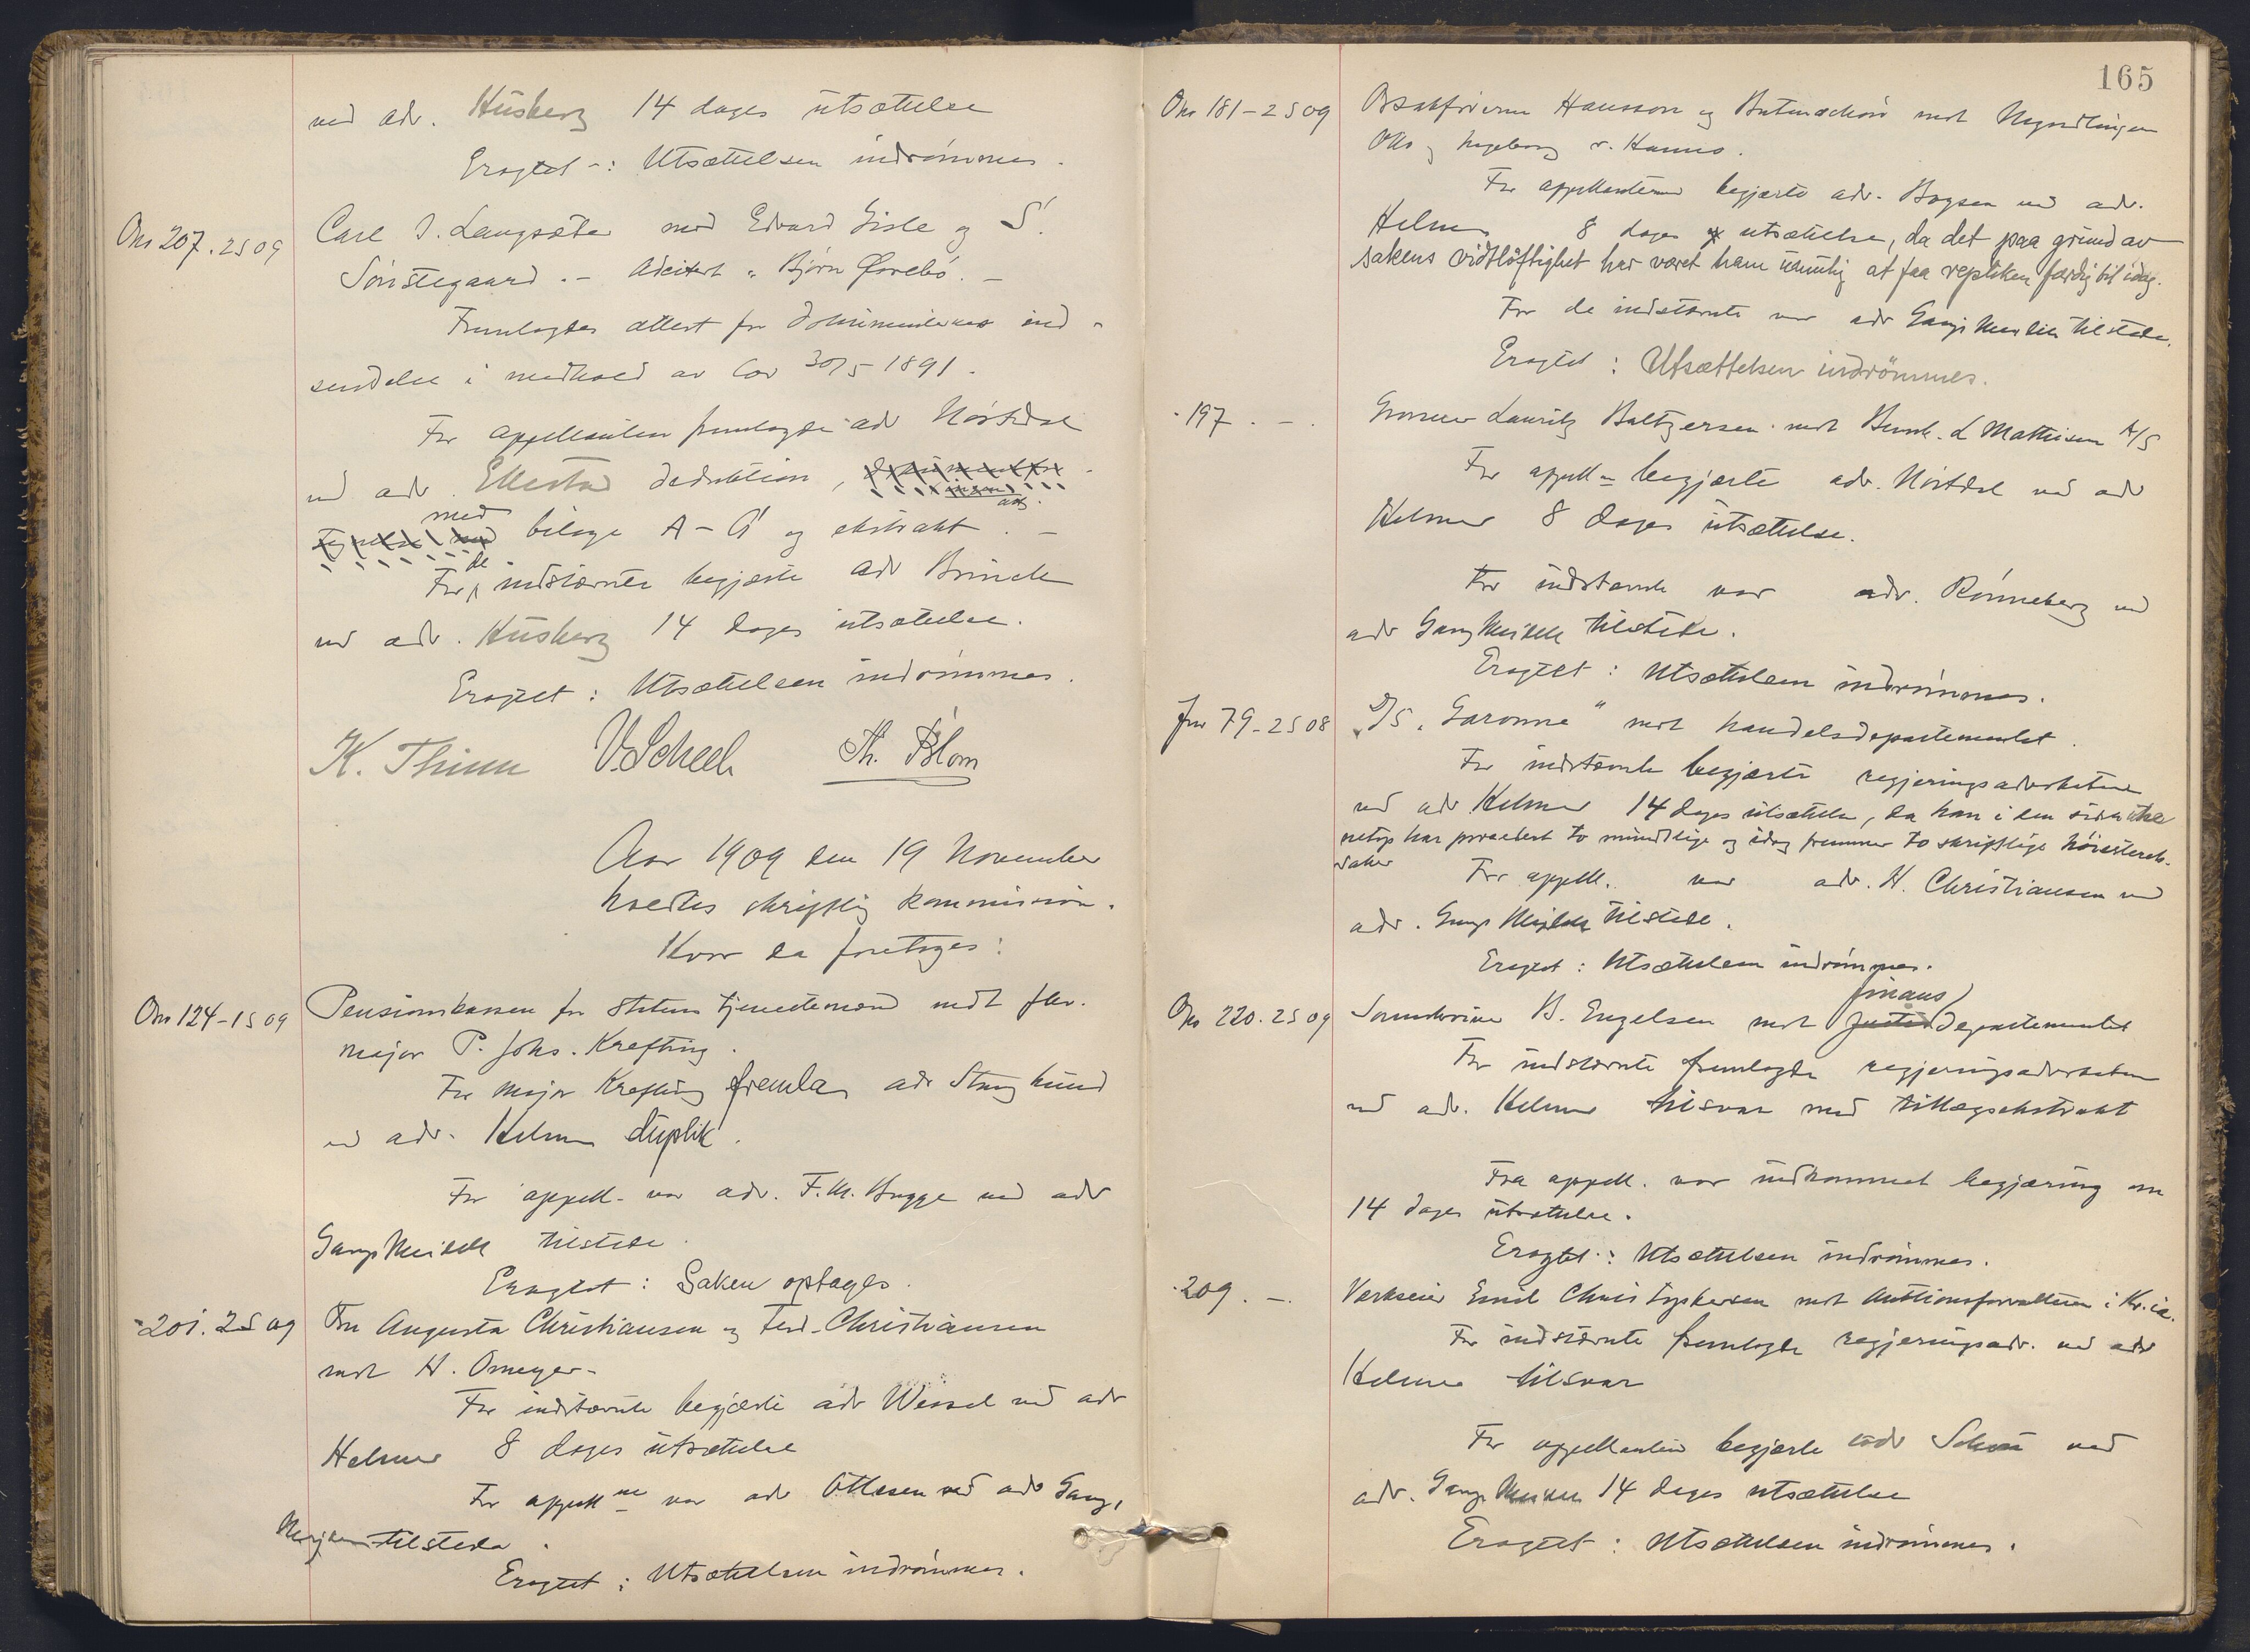 ved adv. Husberg 14 dages utsættelse
Eragtet: Utsættelsen indrømmes.
Ons 207. 2S 09
Carl J. Langsæter mod Edvard Gisle og S.
Sønstegaard. - Adciteret: Bjørn Ørrebø. -
Fremlagdes attest for dokumenternes ind-
sendelse i medhold av lov 30/5 1891.
For appellanten fremlagde adv Nørstebø
ved adv. Ellestad deduktion,
med bilage A - Å og ekstrakt. -
For de indstævnte begjærte adv Brinch
ved adv. Husberg 14 dages utsættelse.
Eragtet: Utsættelsen indrømmes.
K. Thinn V. Scheel Th. Blom
Aar 1909 den 19 November
holdtes skriftlig kommission.
Hvor da foretoges:
Ons 124 - 1S 09
Pensionskassen for statens tjenestemænd mot fhv.
major P. Johs. Krefting.
For major Krefting fremla adv
ved adv. Helmer duplik.
For appell. var adv. F. M. Bugge ved adv
tilstede.
Eragtet: Saken optages.
- 201. 2S 09
Fru Augusta Christiansen og Ferd. Christiansen
mot H. Omeyer -
For indstævnte begjærte adv Wessel ved adv
Helmer 8 dages utsættelse
For appell ne var adv Ottesen ved adv
tilstede.
Eragtet: Utsættelsen indrømmes.
165
Ons 181 - 2S 09
Hansson og mot
og Ingeborg v. Hanno.
For appellanterne begjærte adv. ved adv.
Helmer 8 dages utsættelse, da det paa grund av
sakens vidtløftighet har været ham umulig at faa repliken færdig til idag.
For de indstævnte var adv tilstede.
Eragtet: Utsættelsen indrømmes.
- 197. -.
Lauritz Baltzersen mot L Mathiesen A/S
For appell - begjærte adv. ved adv
Helmer 8 dages utsættelse.
For indstævnte var adv. Rönneberg ved
adv tilstede.
Eragtet: Utsættelsen indrømmes.
79 - 2S 08
"Garonne" mot handelsdepartementet.
For indstævnte begjærte regjeringsadvokaten
ved adv Helmer 14 dages utsættelse, da han i den sidste
netop har procedert to mundtlige og idag fremmer to skriftlige høiesterets-
saker
For appell. var adv. H. Christiansen ved
adv. tilstede.
Eragtet: Utsættelsen indrømmes.
Ons 220. 2S 09
B. Engelsen mot finansdepartementet
For indstævnte fremlagde regjeringsadvokaten
ved adv. Helmer tilsvar med tillægsekstrakt
Fra appell. var indkommet begjæring om
14 dages utsættelse.
Eragtet: Utsættelsen indrømmes.
- 209. -.
Verkseier Emil mot Auktionsforvalteren i Kr.ia.
For indstævnte fremlagde regjeringsadv. ved adv
Helmer tilsvar
For appellanten begjærte adv ved
adv. 14 dages utsættelse
Eragtet: Utsættelsen indrømmes.